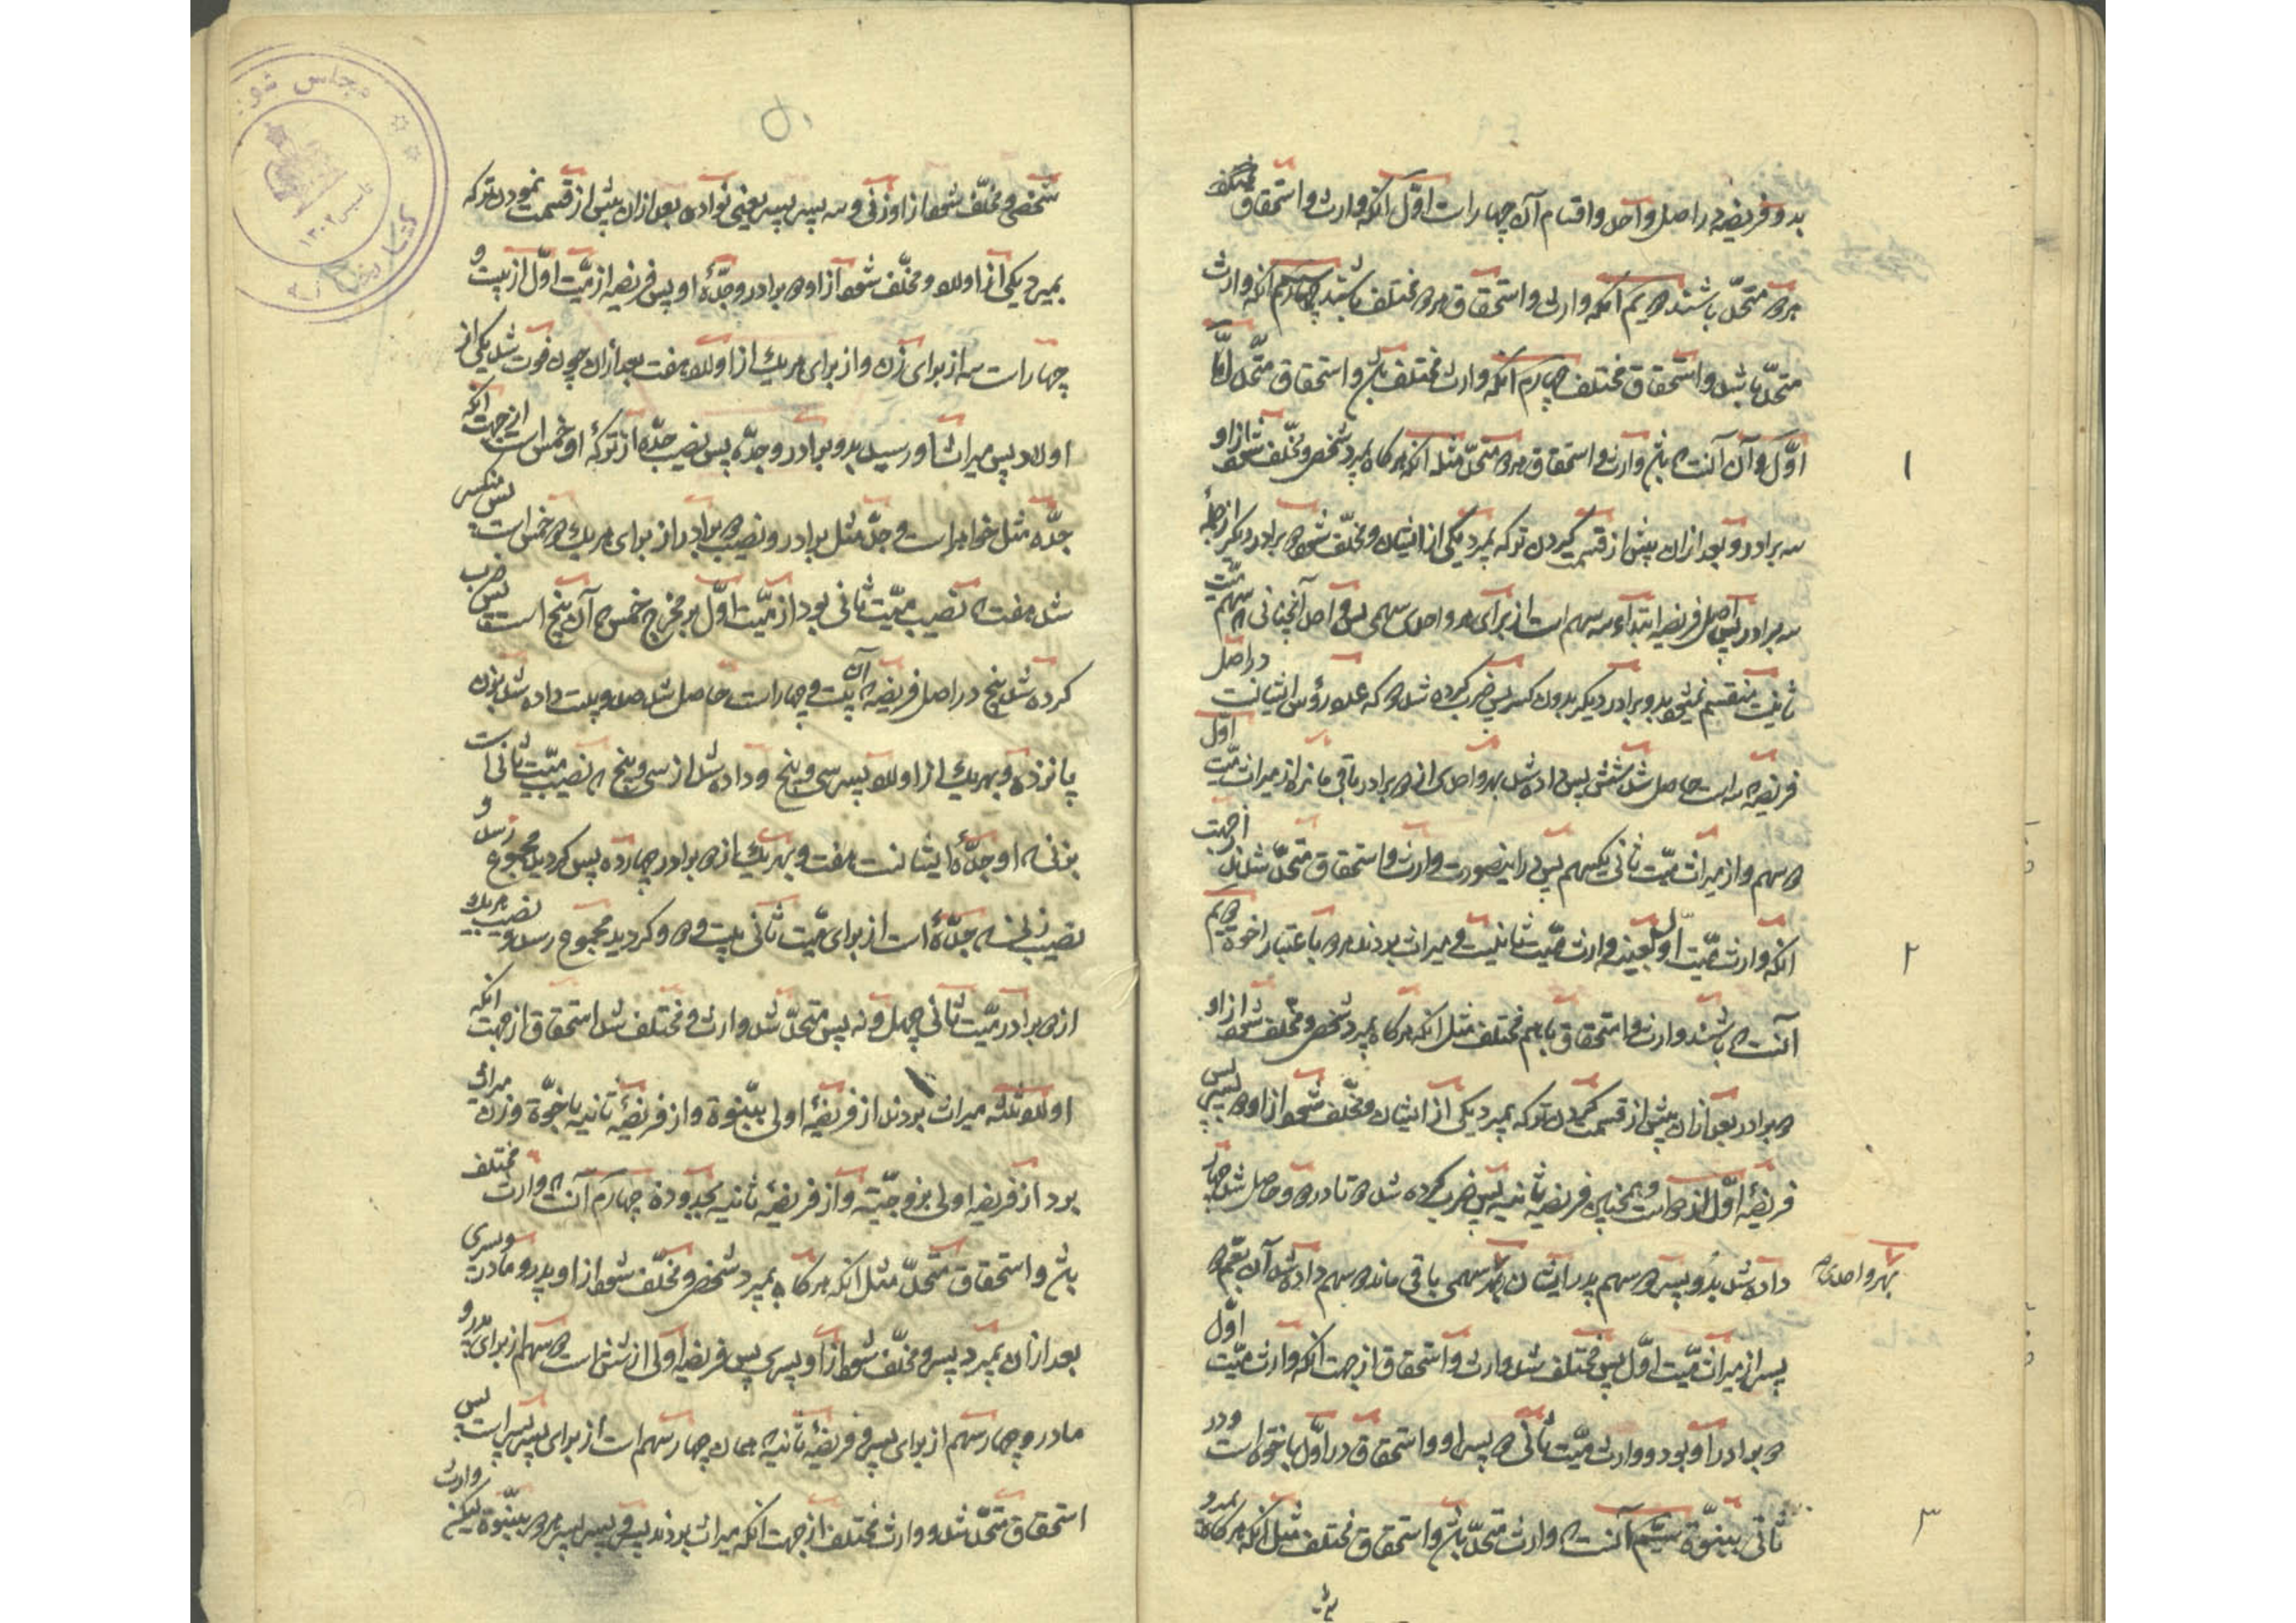 بدو فریضه در اصل واحد و اقسام آن چهار است اوّل آنکه وارث و استحقاق
هر دو متحد باشند دویم آنکه وارث و استحقاق هر دو مختلف باشند سیم آنکه وارث
متحد باشد و استحقاق مختلف چهارم آنکه وارث مختلف باشد و استحقاق متحد امّا
اوّل و آن آنست که باشد وارث و استحقاق هر دو متحد مثل آنکه هرگاه بمیرد شخصی و مخلّف شود از او
سه برادر و بعد از آن پیش از قسمت کردن ترکه بمیرد یکی از ایشان و مخلّف شود دو برادر دیگر از جمله
سه برادر پس اصل فریضه ابتداء سه سهم است از برای هر واحدی سهمی پس واحد آنچنانی که سهم میّت
ثانیست منقسم نمیشود بدو برادر دیگر بدون کسر پس ضرب کرده شد دو که عدد رؤس ایشانست در اصل
فریضه که سه است حاصل شد شش پس داده شد بهر واحدی از دو برادر باقی مانده از میراث میّت اوّل
دو سهم و از میراث میّت ثانی یکسهم پس در اینصورت وارث و استحقاق متحد شدند از جهت
آنکه وارث میّت اول بعینه وارث میّت ثانیست و میراث بردند هر دو باعتبار اخوة دویم
آنست که باشند وارث و استحقاق با هم مختلف مثل آنکه هرگاه بمیرد شخصی و مخلّف شود از او
دو برادر بعد از آن پیش از قسمت کردن ترکه بمیرد یکی از ایشان و مخلّف شود از او دو پسر پس
فریضه اوّل از دو است و همچنین فریضه ثانیه پس ضرب کرده شد دو تا در دو و حاصل شد چهار
داده شد بدو پسر دو سهم پدر ایشان بهر واحدی سهمی باقی ماند دو سهم داده شد آن بعم دو
پسر از میراث میّت اوّل پس مختلف شد وارث و استحقاق از جهت آنکه وارث میّت اوّل
دو برادر او بود و وارث میّت ثانی دو پسر او و استحقاق در اوّل باخوة است و در
ثانی ببنوّة سیّم آنست که وارث متحد باشد و استحقاق مختلف مثل آنکه هرگاه بمیرد
شخصی و مخلّف شود از او زنی و سه پسر یعنی بعد از آن پیش از قسمت نمودن ترکه
بمیرد یکی از اولاد و مخلّف شود از او دو برادر و جدّهٔ او پس فریضه از میّت اوّل از بیست و
چهار است سه از برای زن و از برای هر یک از اولاد هفت بعد از آن چون فوت شد یکی از
اولاد پس میراث او رسید بدو برادر و جدّه پس نصیب جدّه از ترکهٔ او خمس است از جهت آنکه
جدّه مثل خواهر است و جدّ مثل برادر و نصیب دو برادر از برای هر یک دو خمس است پس منکسر
شد هفت که نصیب میّت ثانی بود از میّت اوّل بر مخرج خمس که آن پنج است پس ضرب
کرده شد پنج در اصل فریضه که آن بیست و چهار است حاصل شد صد و بیست داده شد بزن
پانزده و بهر یک از اولاد سی و پنج و داده شد از سی و پنج که نصیب میّت ثانی است
بزنی که او جدّهٔ ایشانست هفت و بهر یک از دو برادر چهارده پس گردید مجموع
نصیب زنی که جدّه است از برای میّت ثانی بیست و دو و گردید مجموع رسد و نصیب هر یک
از دو برادر میّت ثانی چهل و نه پس متحد شد وارث و مختلف شد استحقاق از جهت آنکه
اولاد ثلثه میراث بردند از فریضهٔ اولی ببنوة و از فریضهٔ ثانیه باخوّة و زن میراث
برد از فریضه اولی بزوجیّت و از فریضهٔ ثانیه بجدودة چهارم آنست که وارث مختلف
باشد و استحقاق متحد مثل آنکه هرگاه بمیرد شخصی و مخلّف شود از او پدر و مادر و پسری
بعد از آن بمیرد پسر و مخلّف شود از او پسری پس فریضه اولی از شش است دو سهم از برای پدر و
مادر و چهار سهم از برای پسر و فریضهٔ ثانیه همان چهار سهم است از برای پسر پسر است پس
استحقاق متحد شد و وارث مختلف از جهت آنکه میراث بردند پسر و پسر پسر هر دو ببنوّة لیکن وارث